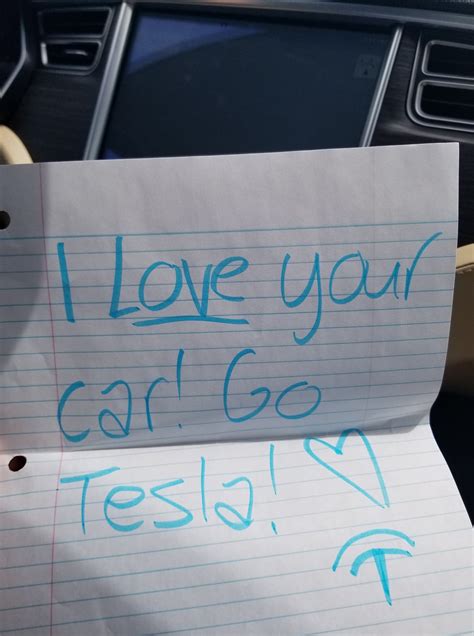 I Love your
car! Go
Tesla!